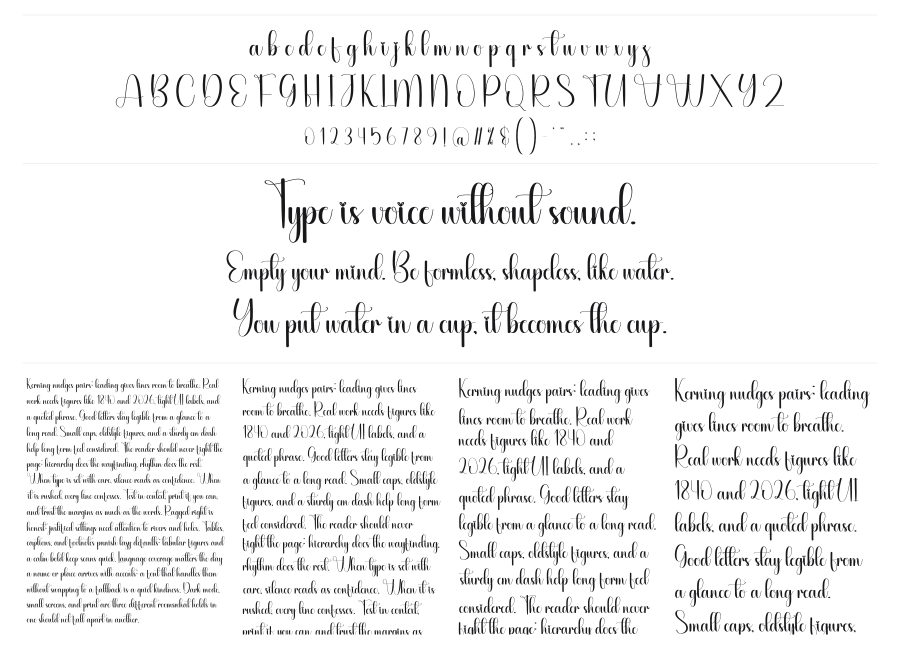 a b c d e f g h i j k l m n o p q r s t u v w x y z
A B C D E F G H I J K L M N O P Q R S T U V W X Y Z
0 1 2 3 4 5 6 7 8 9 ! @ # % & ( ) - ' " . , : ;
Type is voice without sound.
Empty your mind. Be formless, shapeless, like water.
You put water in a cup, it becomes the cup.
Kerning nudges pairs; leading gives lines room to breathe. Real
work needs figures like 1840 and 2026, tight UI labels, and
a quoted phrase. Good letters stay legible from a glance to a
long read. Small caps, oldstyle figures, and a sturdy em dash
help long form feel considered. The reader should never fight the
page; hierarchy does the wayfinding, rhythm does the rest.
When type is set with care, silence reads as confidence. When
it is rushed, every line confesses. Test in context, print if you can,
and trust the margins as much as the words. Ragged right is
honest; justified settings need attention to rivers and holes. Tables,
captions, and footnotes punish lazy defaults; tabular figures and
a calm bold keep scans quick. Language coverage matters the day
a name or place arrives with accents; a font that handles them
without swapping to a fallback is a quiet kindness. Dark mode,
small screens, and print are three different rooms; what holds in
one should not fall apart in another.
Kerning nudges pairs; leading gives lines
room to breathe. Real work needs figures like
1840 and 2026, tight UI labels, and a
quoted phrase. Good letters stay legible from
a glance to a long read. Small caps, oldstyle
figures, and a sturdy em dash help long form
feel considered. The reader should never
fight the page; hierarchy does the wayfinding,
rhythm does the rest. When type is set with
care, silence reads as confidence. When it is
rushed, every line confesses. Test in context,
print if you can, and trust the margins as
Kerning nudges pairs; leading gives
lines room to breathe. Real work
needs figures like 1840 and
2026, tight UI labels, and a
quoted phrase. Good letters stay
legible from a glance to a long read.
Small caps, oldstyle figures, and a
sturdy em dash help long form feel
considered. The reader should never
fight the page; hierarchy does the
Kerning nudges pairs; leading
gives lines room to breathe.
Real work needs figures like
1840 and 2026, tight UI
labels, and a quoted phrase.
Good letters stay legible from
a glance to a long read.
Small caps, oldstyle figures,